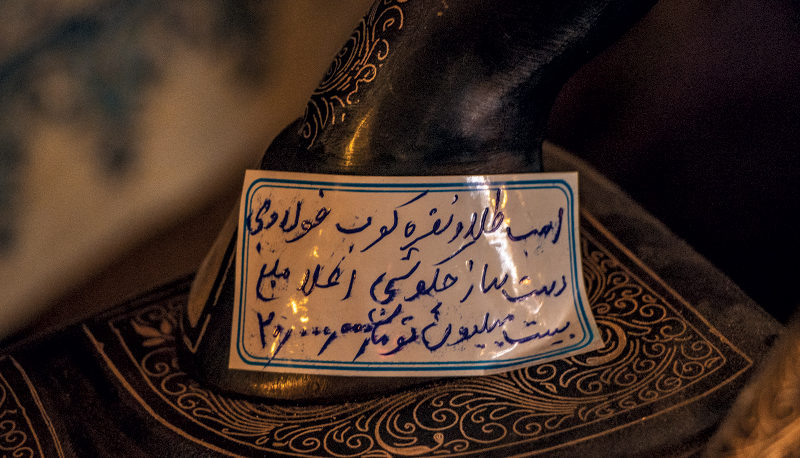 اسب طلا و نقره کوب فولادی
دست ساز حکوشی اعلا مبلغ
بیست میلیون تومان ۲۰,۰۰۰,۰۰۰